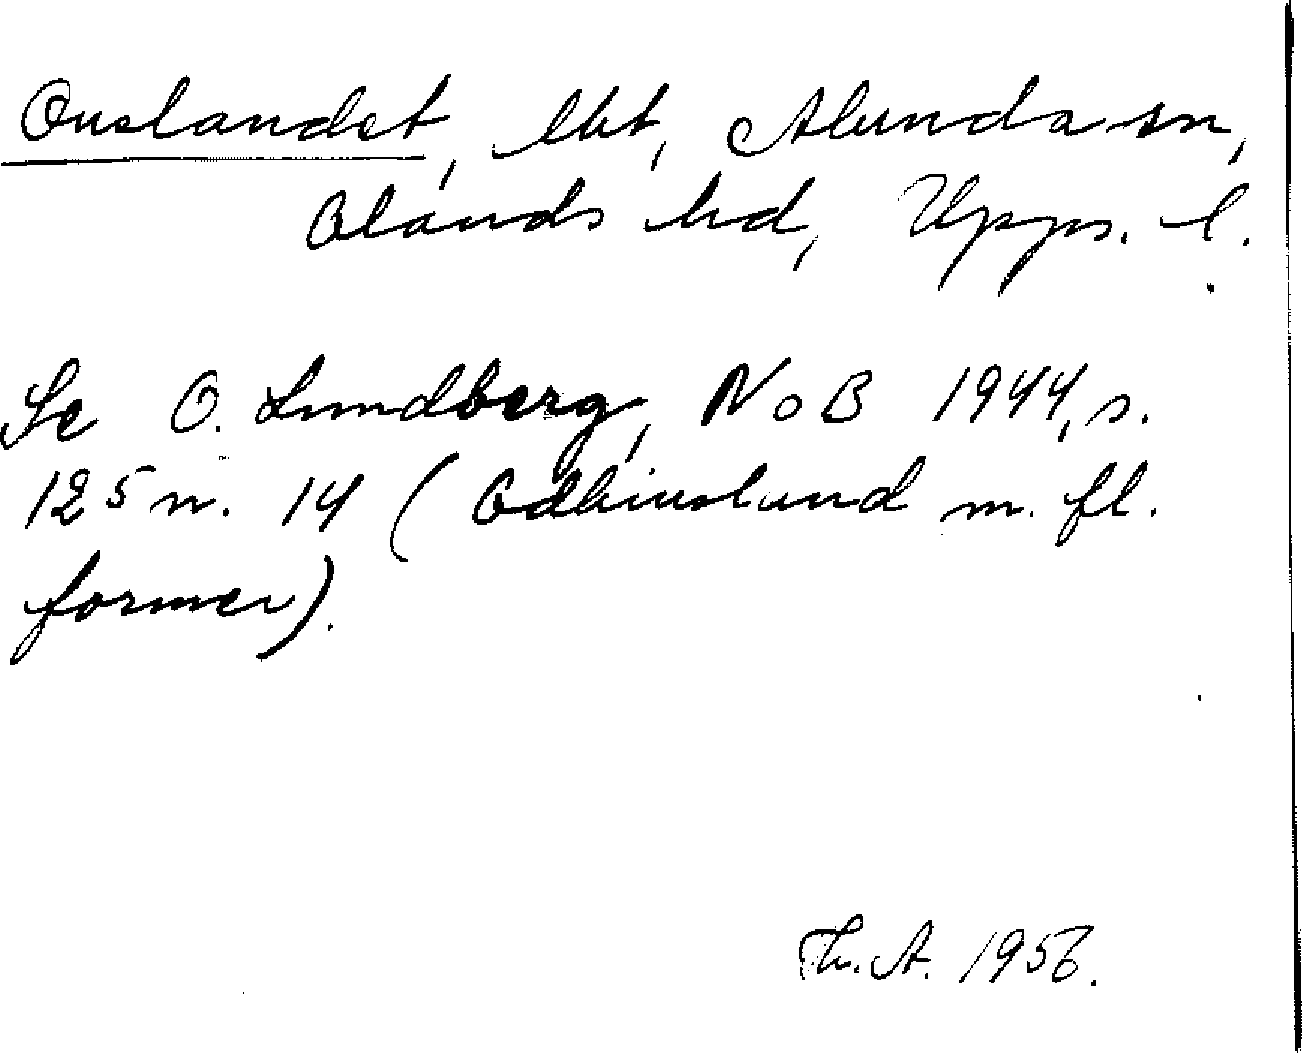 Onslandet, lbt, Alunda sn,
Olands hd, Upps. l.
Se O. Lundberg, NoB 1944, s.
125 n. 14 (Odhinslund m. fl.
former).
Th. A. 1956.